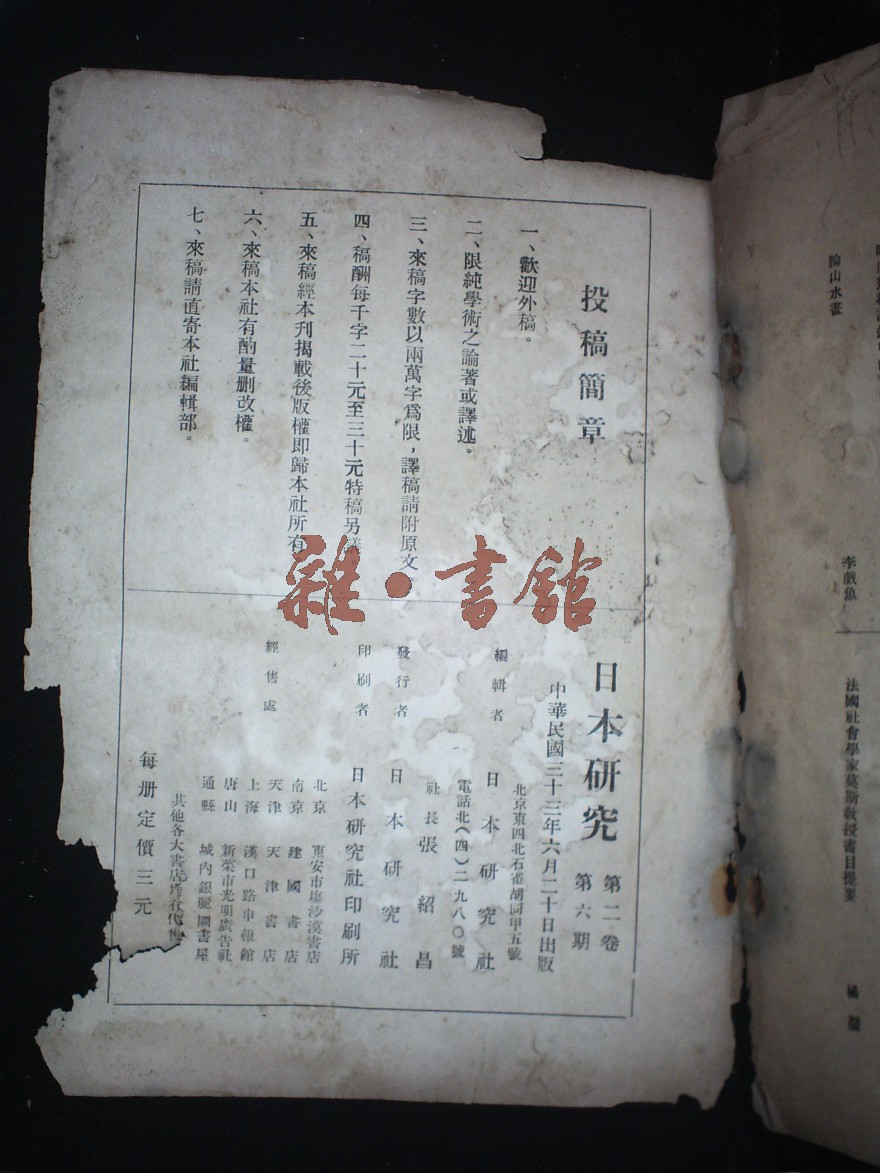 投稿簡章
一、歡迎外稿。
二、限純學術之論著或譯述。
三、來稿字數以兩萬字爲限，譯稿請附原文
四、稿酬每千字二十元至三十元特稿另議
五、來稿經本刊揭載後版權即歸本社所有
六、來稿本社有酌量删改權。
七、來稿請直寄本社編輯部。
雜·書館
日本研究 第二卷 第六期
中華民國三十三年六月二十日出版
北京東四北石雀胡同甲五號
編輯者 日本研究社
電話北(四)二九八〇號
社長 張紹昌
發行者 日本研究社
印刷者 日本研究社印刷所
經售處
北京 東安市塲沙漠書店
南京 建國書店
天津 天津書店
上海 漢口路申報館
唐山 新榮市光明廣告社
通縣 城內銀龍圖書屋
其他各大書店均有代售
每册定價三元
論山水畫
李戲魚
法國社會學家莫斯教授書目提要